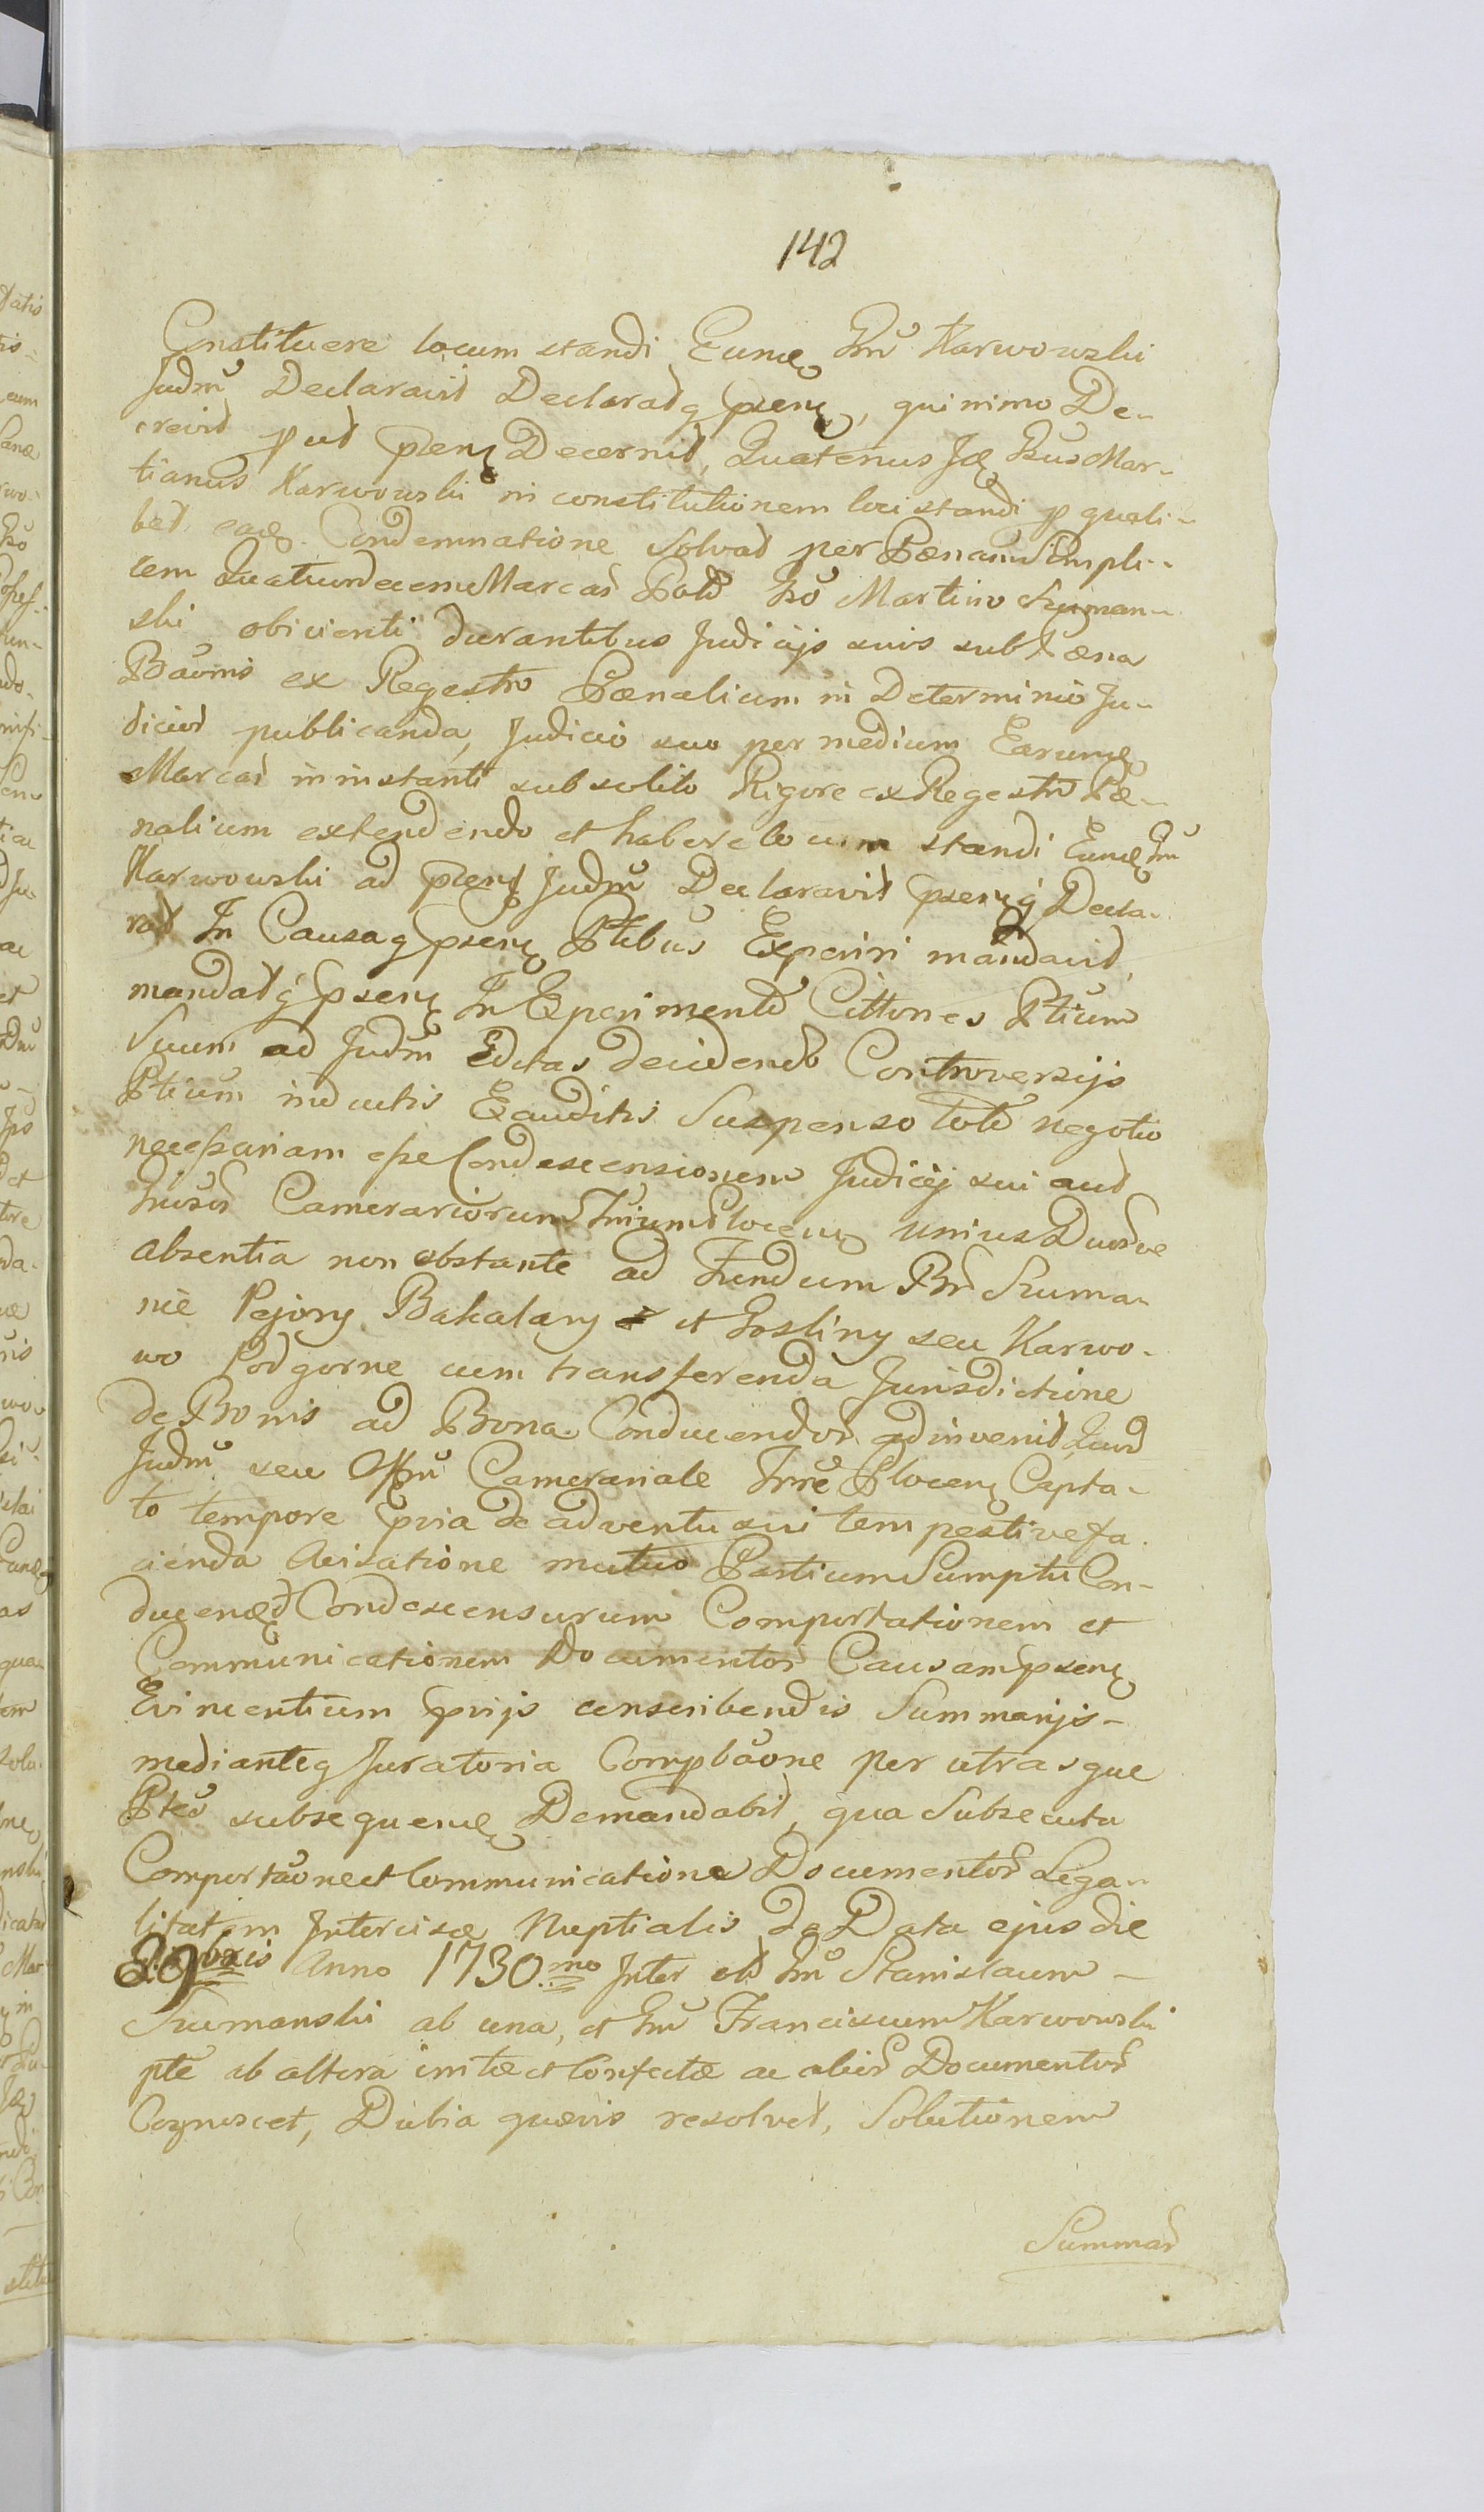 142
Constituere locum standi Eundę Gnū Karwowski
Judm̄ Declaravit Declaratq pſenę, quinimo De-
crevit put pſenę Decernit, Quatenus Idę Gnūs Mar-
tianus Karwowski in constitutionem loci standi p quali-
bet eadę Condemnatione Solvat per Pœnam Simpli-
cem Quatuordecem Marcas Polo Gnō Martino Szyman-
ski obicienti durantibus Judicijs suis sub Pœna
Bāonis ex Regestro Pœnalium in Determinio Ju-
dicior publicanda, Judicio suo per medium Earundę
Marcas in instanti sub solito Rigore ex Regestro Pœ-
nalium extendendo et habere locum standi Eundę Gnū
Karwowski ad pſenę Judm̄ Declaravit pſenęq Decla-
rat In Causaq pſenę Ptibus Experiri mandavit,
mandatq pſenę In Experimento Cittones Ptium
Suum ad Judm̄ Editas decidendo Controversijs
Ptium inductis Exauditis Suspenso toto negotio
necessariam esse Condescensionem Judicij sui aut
Camerariorum Plocenę unius Duorve
absentia non obstante ad Fundum Bnr Szuma-
nie Pejory Bakalary et Gosliny seu Karwo-
wo Podgorne cum transferenda Jurisdictione
de Bonis ad Bona Conducendor adinvenit Quod
Judm̄ seu Offm̄ Camerariale Trrē Plocenę Capta-
to tempore pria de adventu sui tempestive fa-
cienda Avisatione mutuo Partium Sumptu Con-
ducendę Condescensurum Comportationem et
Communicationem Documentor Causam pſenę
Evincentium prijs conscribendis Summarijs-
medianteq Juratoria Compbāone per utrasque
Ptes subsequendę Demandabit, qua Subsecuta
Comportāone et Communicatione Documentor Lega-
litatem Intercisæ Nuptialis de Data ejus die
Anno 1730mo Inter olī Gnū Stanislaum -
Szumanski ab una, et Gnū Franciscum Karwowski
pte ab altera initæ et Confectæ ac alior Documentor
Cognoscet, Dubia quævis resolvet, Solutionem
Summar